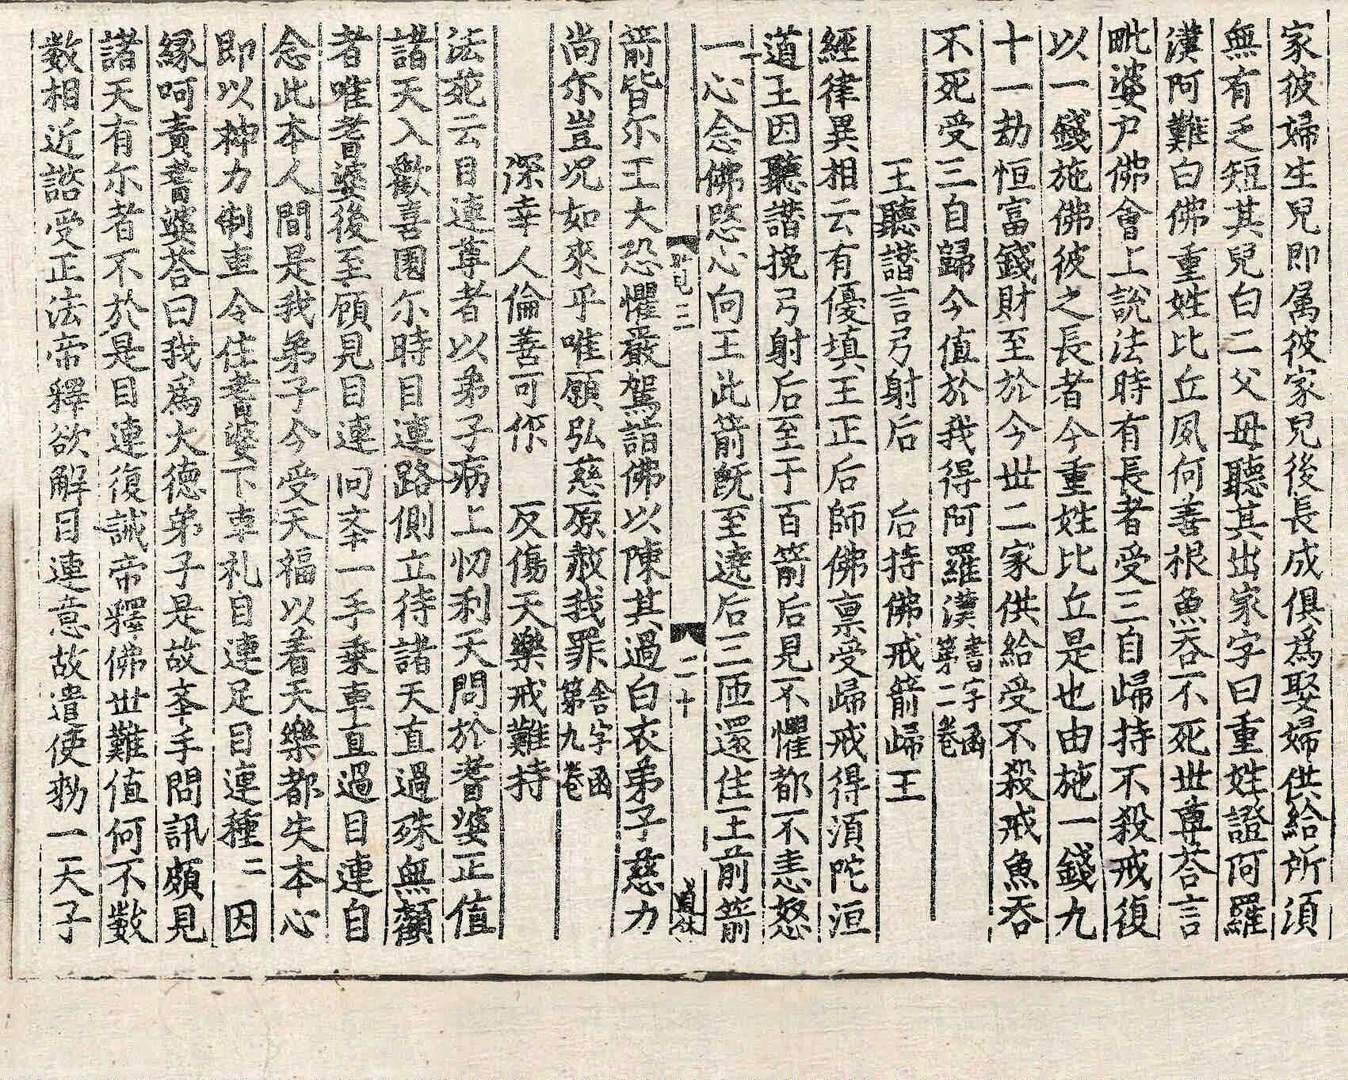 家彼婦生兒即属彼家兒後長成俱爲娶婦供給所須
無有乏短其兒白二父母聽其出家字曰重姓證阿羅
漢阿難白佛重姓比丘夙何善根魚吞不死世尊荅言
毗婆尸佛會上說法時有長者受三自歸持不殺戒復
以一錢施佛彼之長者今重姓比丘是也由施一錢九
十一劫恒富錢財至於今世二家供給受不殺戒魚吞
不死受三自歸今值於我得阿羅漢書字函第二卷
王聽譛言弓射后　后持佛戒箭歸王
經律異相云有優填王正后師佛禀受歸戒得須陀洹
道王因聽譛挽弓射后至于百箭后見不懼都不恚怒
一心念佛慈心向王此箭旣至遶后三匝還住王前箭
二十
箭皆尓王大恐懼嚴駕詣佛以陳其過白衣弟子慈力
尚尓豈况如來乎唯願弘慈原赦我罪舍字函第九卷
深幸人倫善可作　反傷天樂戒難持
法苑云目連尊者以弟子病上忉利天問於耆婆正值
諸天入歡喜園尓時目連路側立待諸天直過殊無顧
者唯耆婆後至顧見目連向夲一手乗車直過目連自
念此本人間是我弟子今受天福以着天樂都失本心
即以神力制車令住耆婆下車礼目連足目連種二因
緣呵責耆婆荅曰我爲大德弟子是故夲手問訊頗見
諸天有尓者不於是目連復誡帝釋佛世難值何不數
数相近諮受正法帝釋欲解目連意故遣使勑一天子